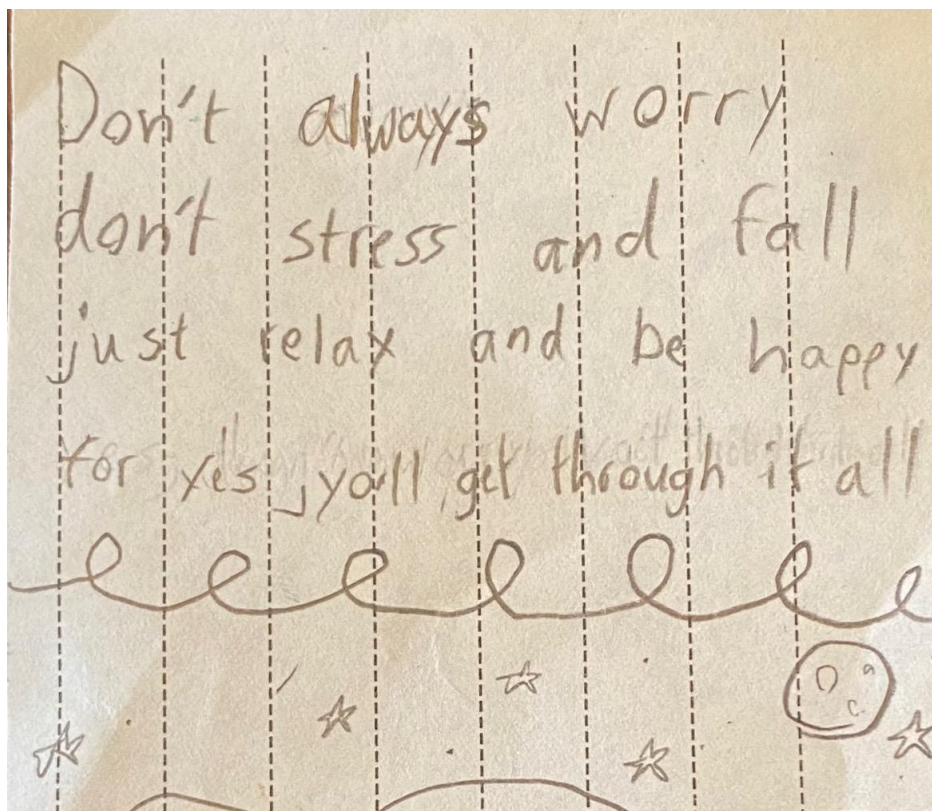 Don't always worry
don't stress and fall
just relax and be happy
for yes, ya'll get through it all